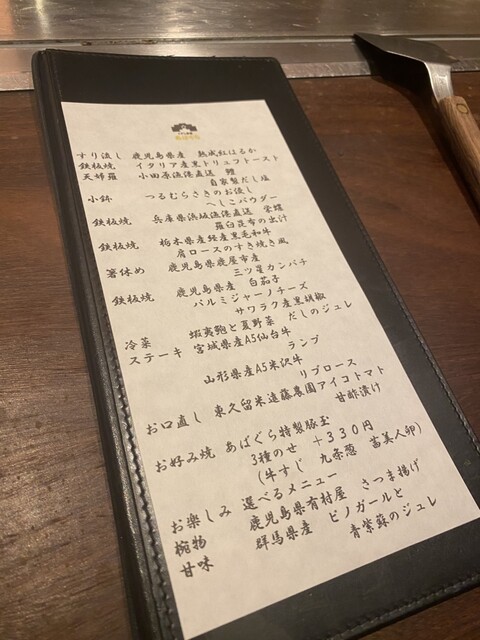 すり流し 鹿児島県産 熟成紅はるか
鉄板焼 イタリア産黒トリュフトースト
天婦羅 小田原漁港直送 鱧
自家製だし塩
小鉢 つるむらさきのお浸し
へしこパウダー
鉄板焼 兵庫県浜坂漁港直送 栄螺
羅臼昆布の出汁
鉄板焼 栃木県産経産黒毛和牛
肩ロースのすき焼き風
箸休め 鹿児島県鹿屋市産
三ツ星カンパチ
鉄板焼 鹿児島県産 白茄子
パルミジャーノチーズ
サワラク産黒胡椒
冷菜 蝦夷鮑と夏野菜 だしのジュレ
ステーキ 宮城県産A5仙台牛
ランプ
山形県産A5米沢牛
リブロース
お口直し 東久留米遠藤農園アイコトマト
甘酢漬け
お好み焼 あばぐら特製豚玉
3種のせ +330円
(牛すじ 九条葱 富美人卵)
お楽しみ 選べるメニュー
椀物 鹿児島県有村屋 さつま揚げ
甘味 群馬県産 ピノガールと
青紫蘇のジュレ